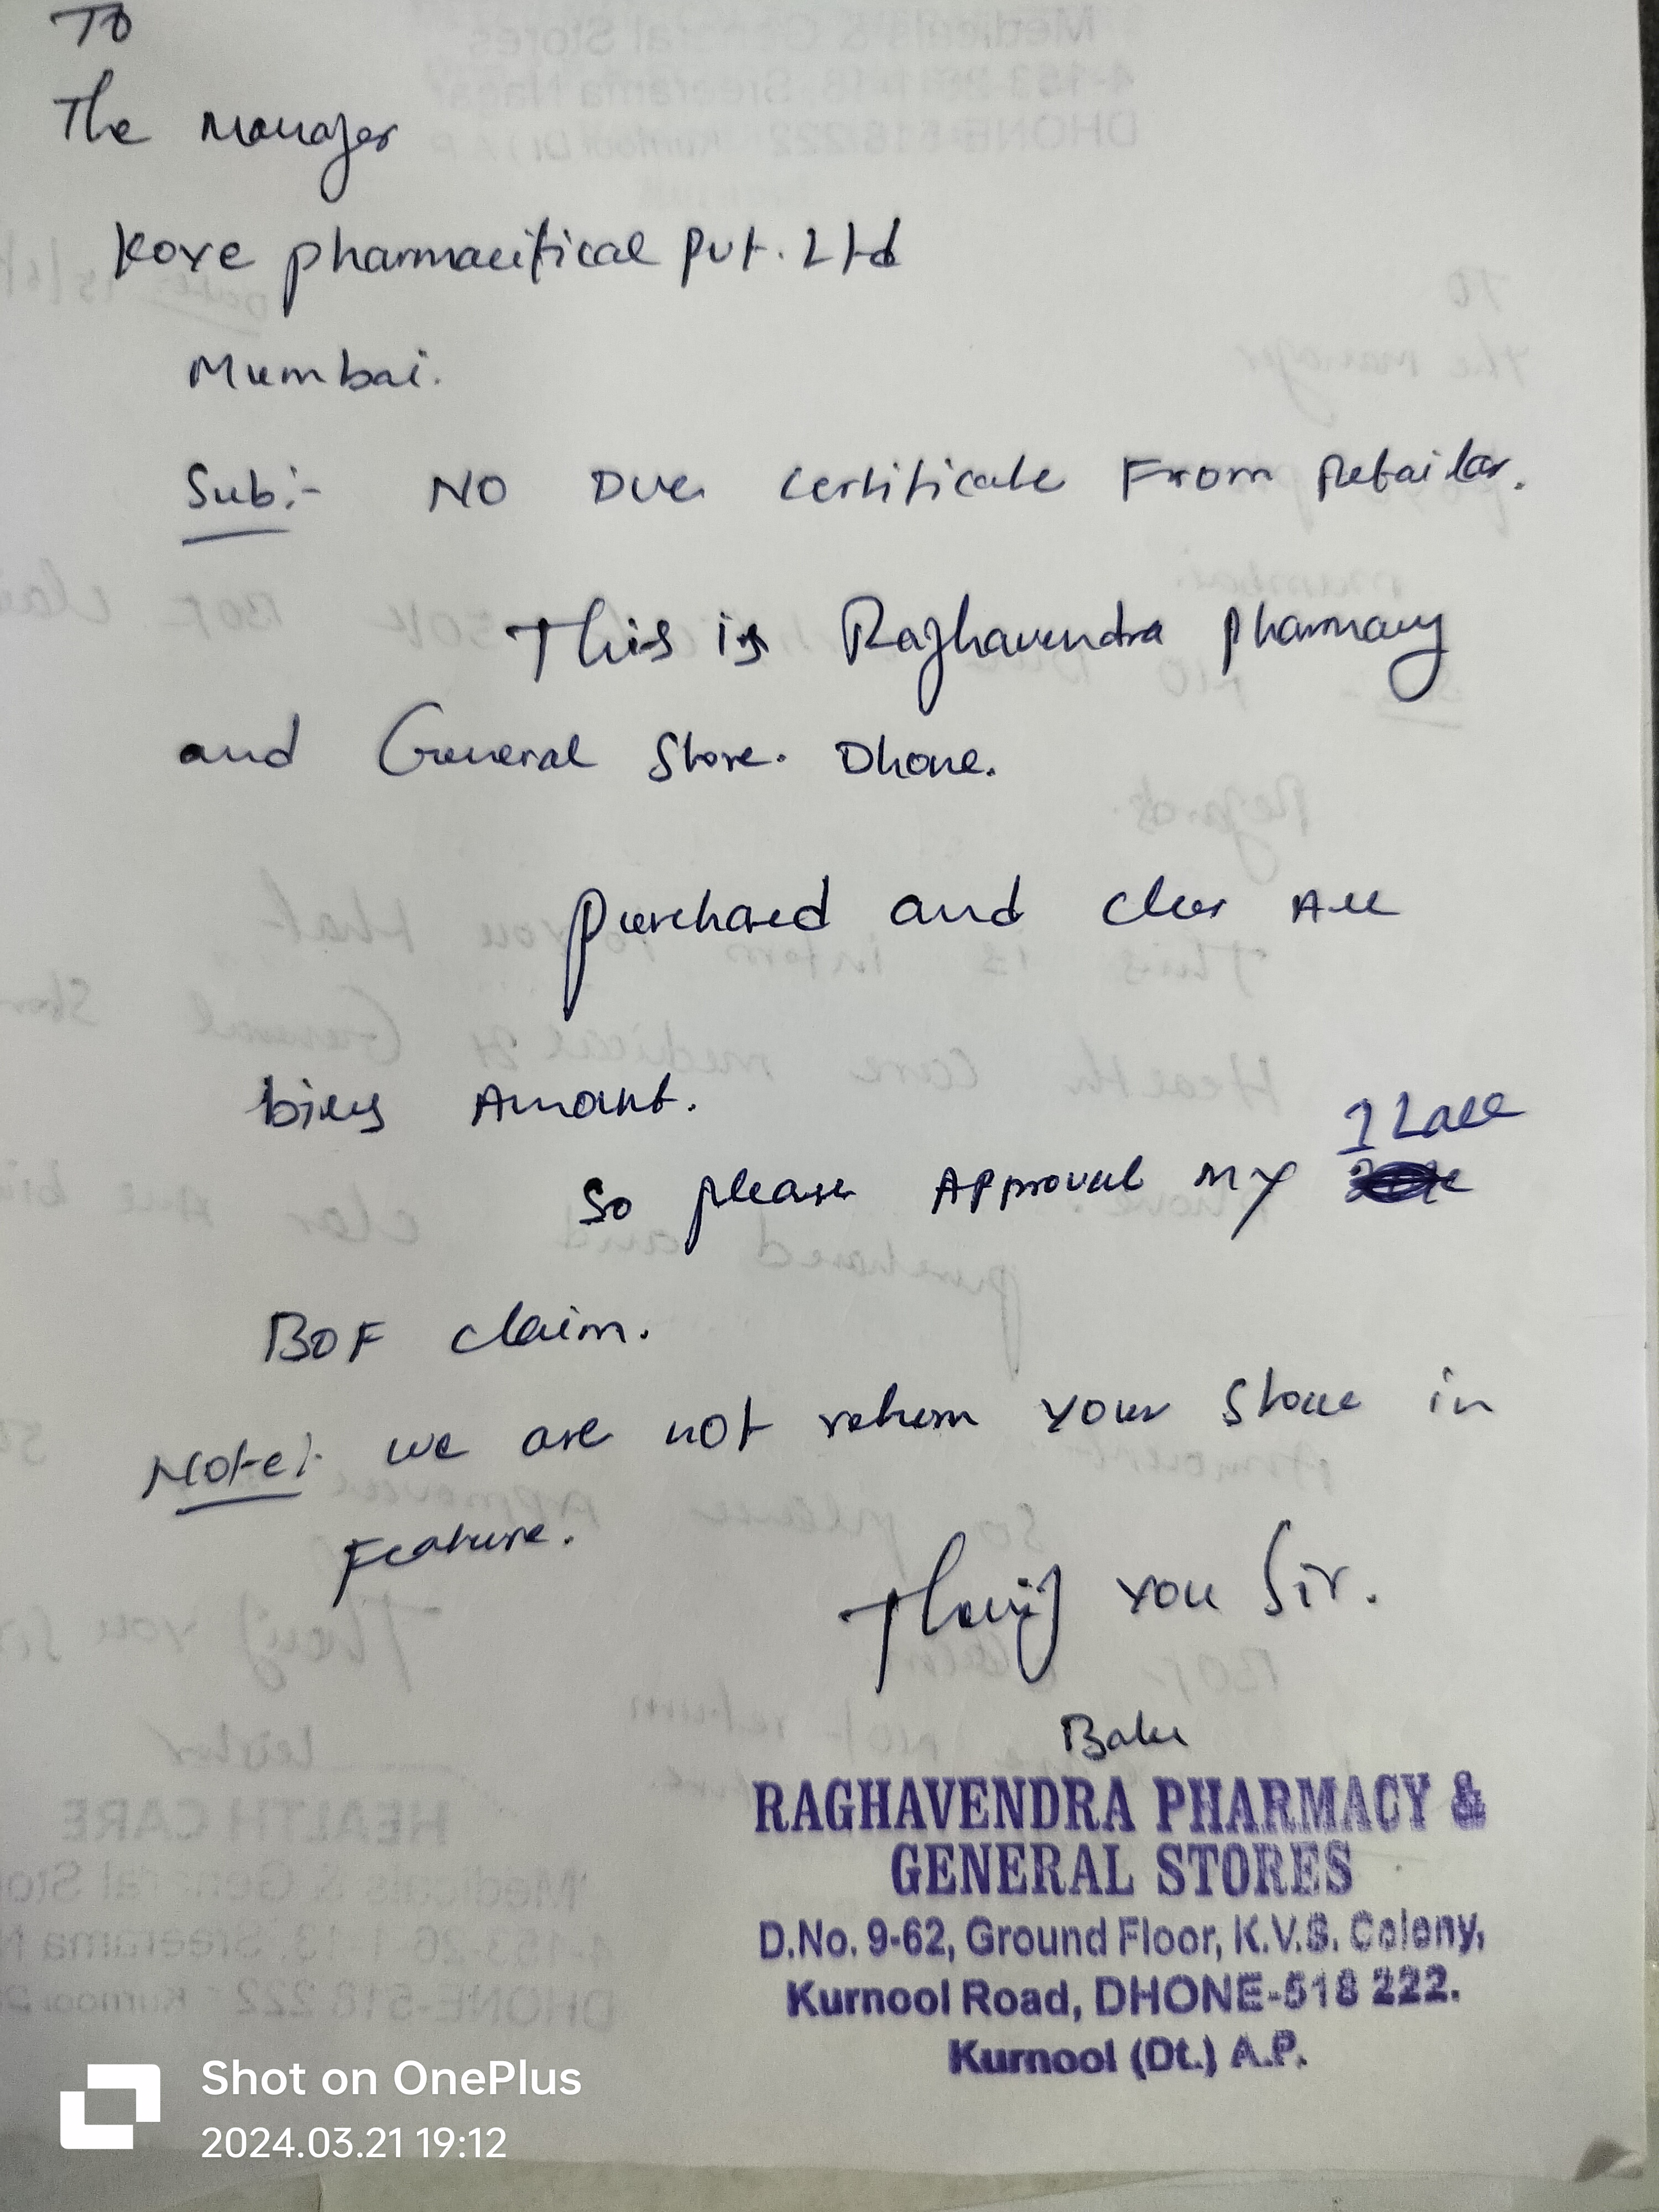 To
The manager
Kore pharmacitical Pvt. Ltd
Mumbai.
Sub:- NO Due certificate From Retailar.
This is Raghavendra pharmacy
and General Store. Dhone.
purchaed and clear All
bills Amount.
1 Lack
So please Approval my
BOF claim.
Note:- we are not return your Stock in
Feature.
you Sir.
RAGHAVENDRA PHARMACY &
GENERAL STORES
D.No. 9-62, Ground Floor, K.V.S. Colony,
Kurnool Road, DHONE-518 222.
Kurnool (Dt.) A.P.
Shot on OnePlus
2024.03.21 19:12